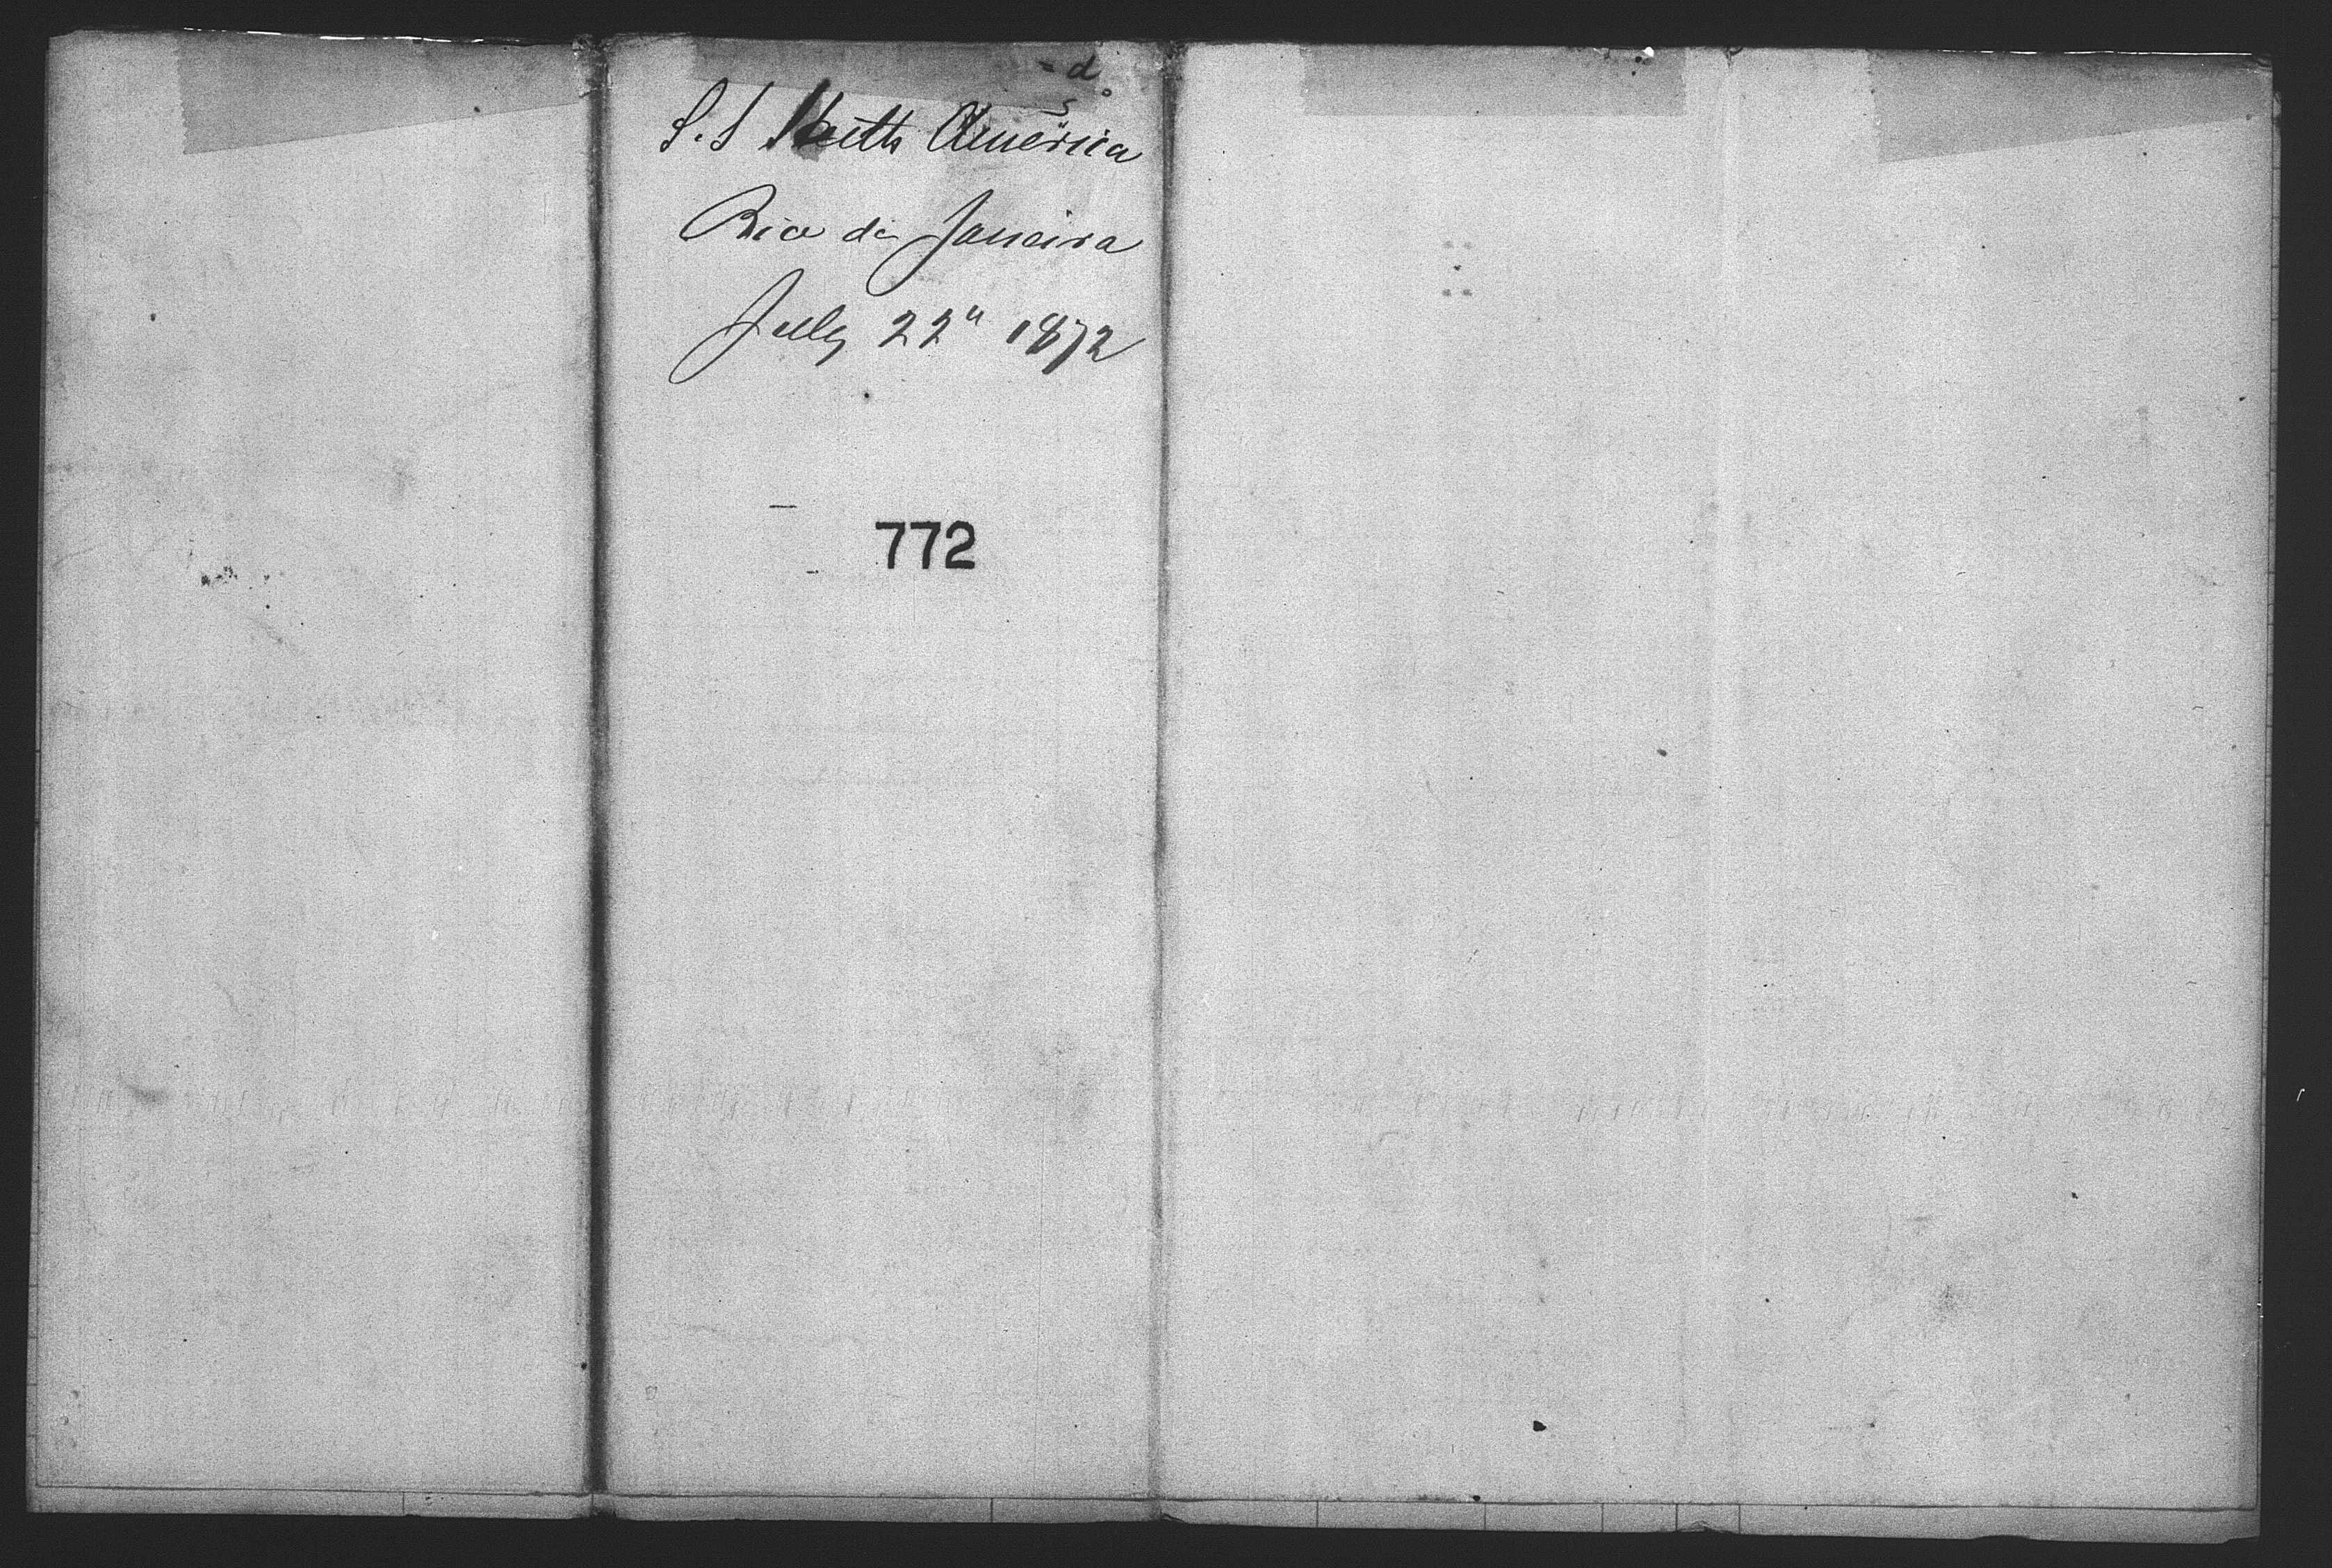 S.S North America
Rio de Janeiro
July 22" 1872
772